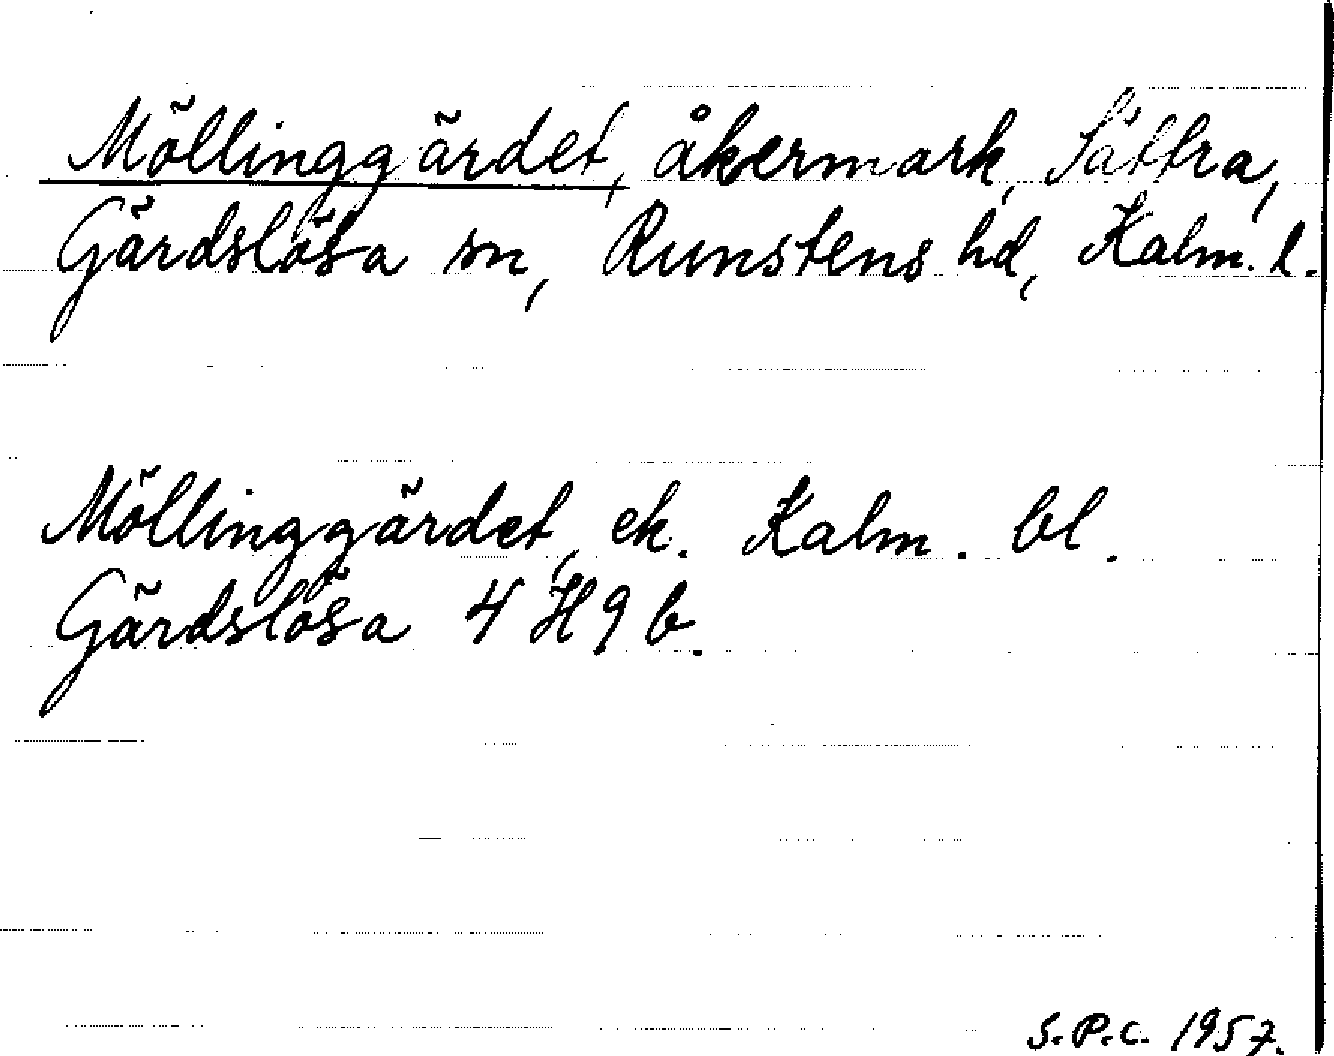 Möllinggärdet, åkermark, Sättra,
Gärdslösa sn, Runstens hd, Kalm. l.
Möllinggärdet, ek. Kalm. bl.
Gärdslösa 4 H 9 b.
S.P.C. 1957.